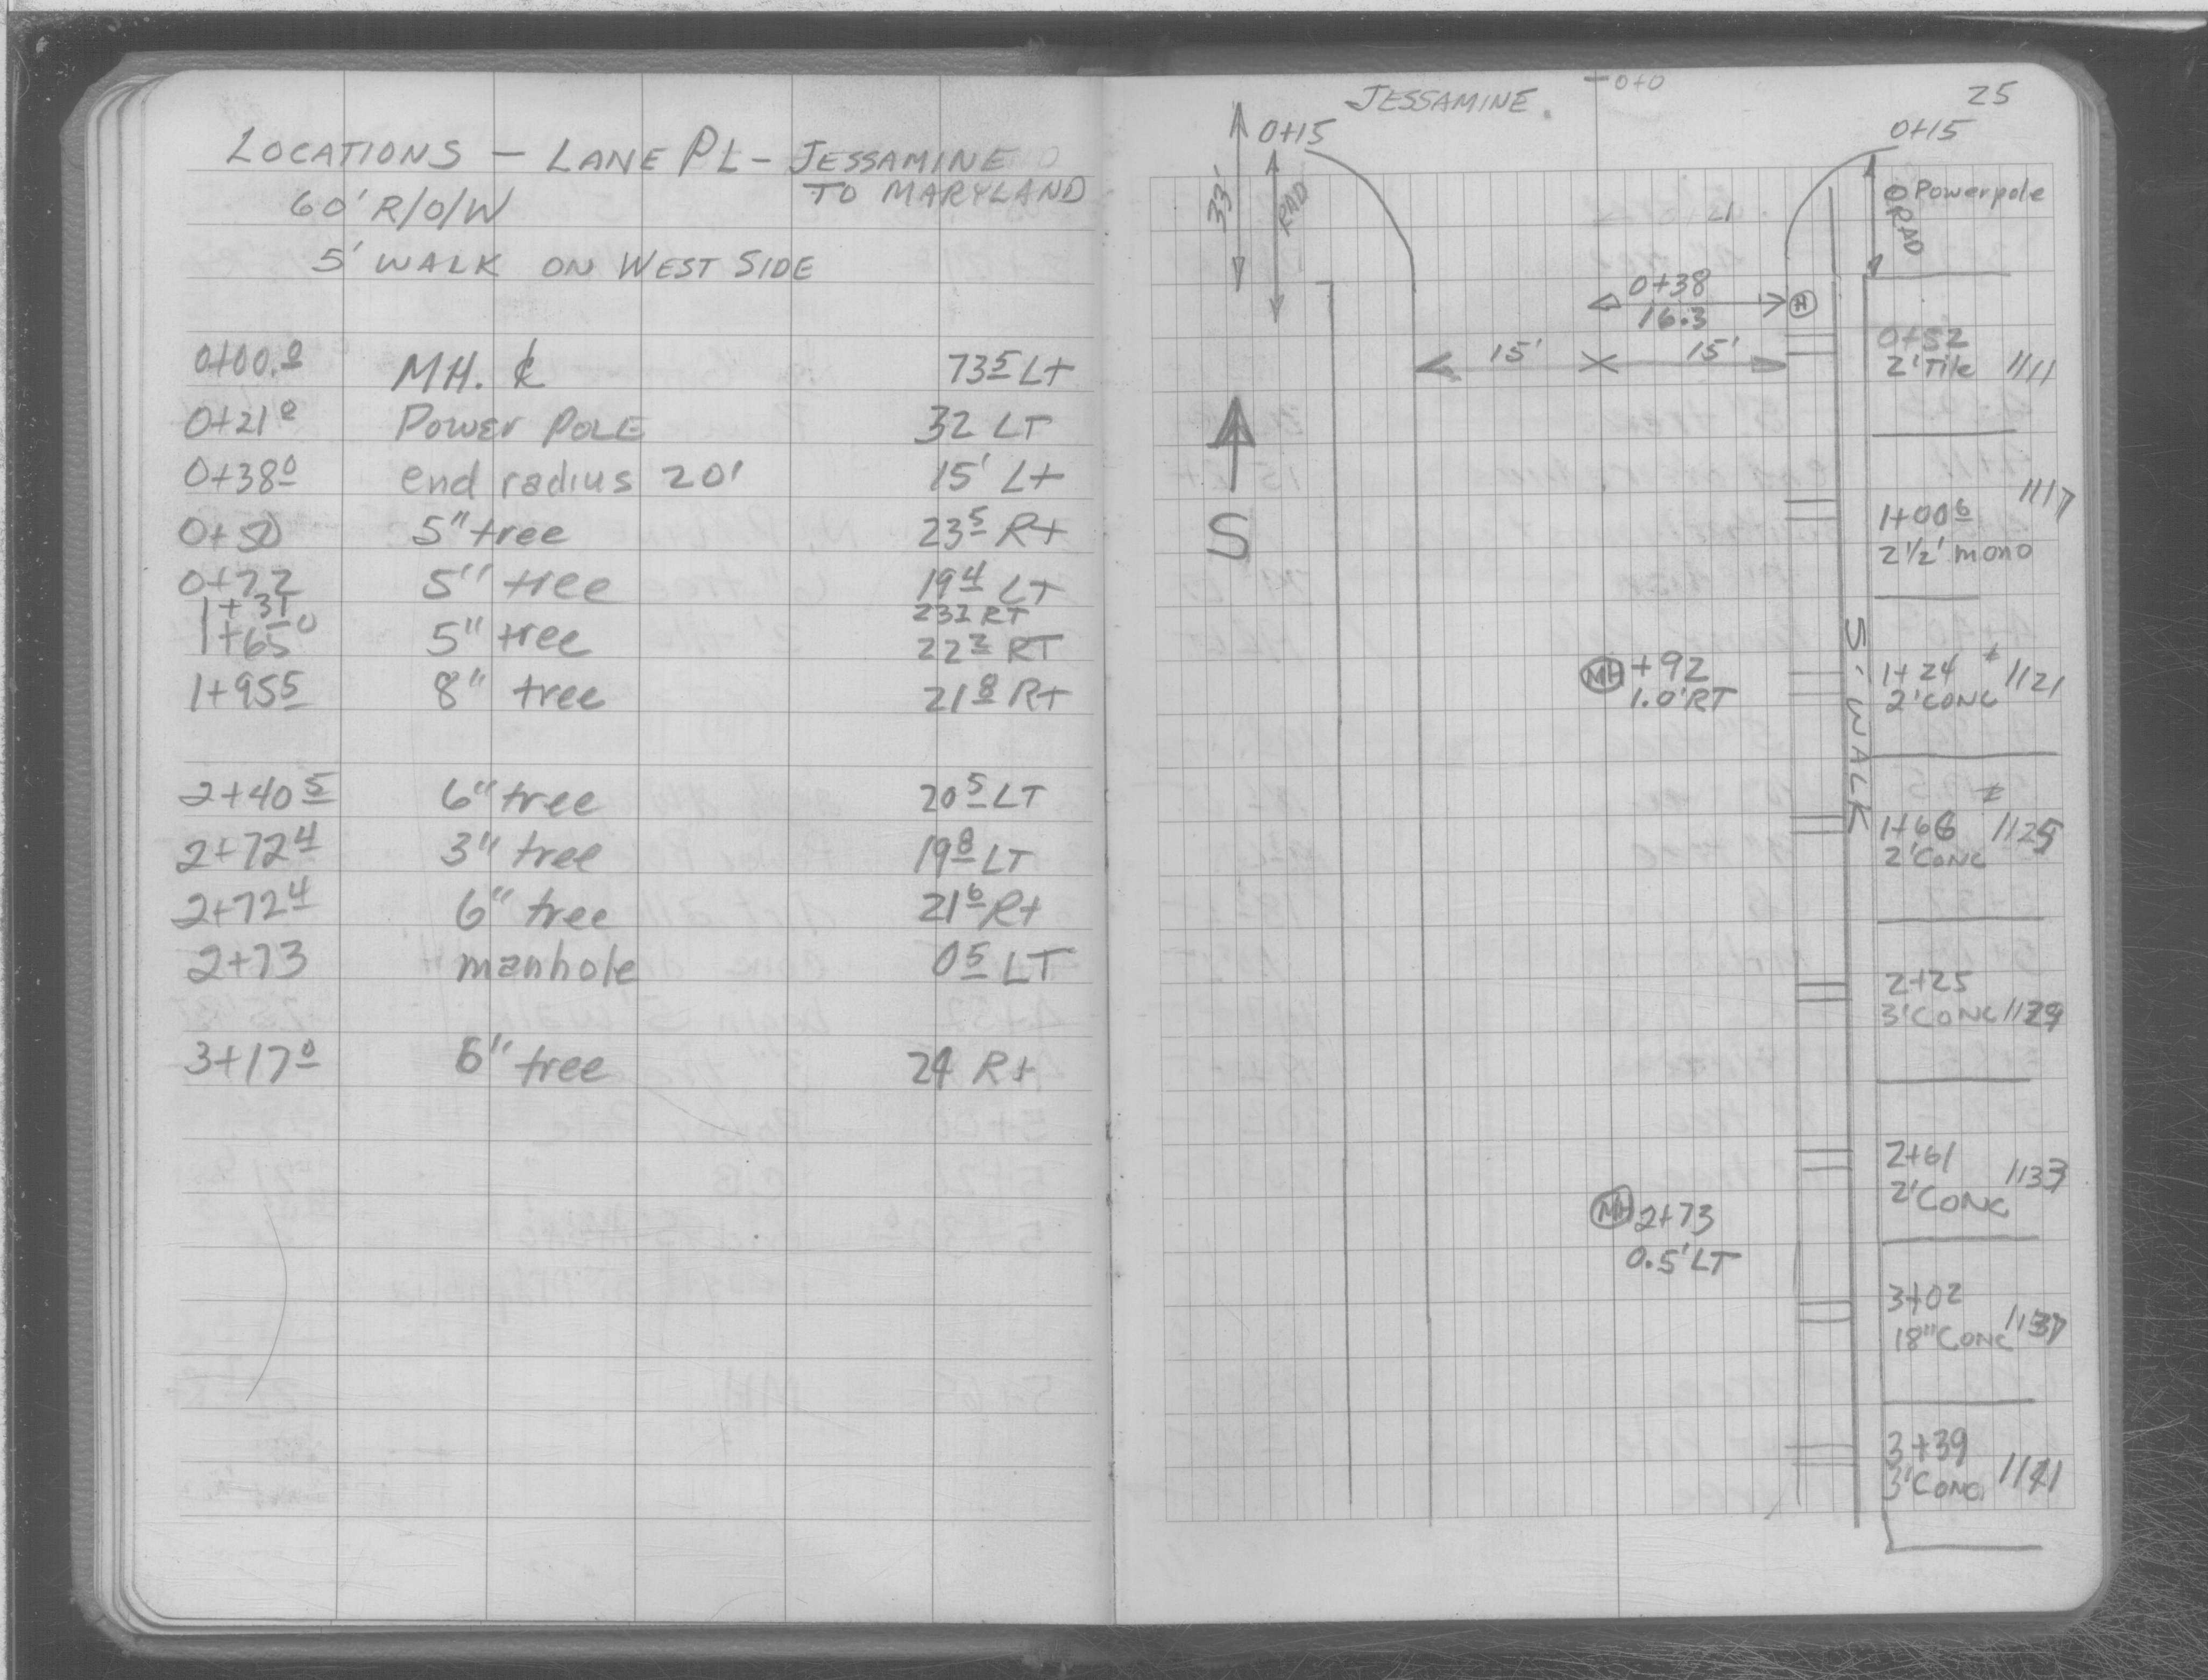 LOCATIONS — LANE PL — JESSAMINE
TO MARYLAND
60' R/O/W
5' WALK ON WEST SIDE
0+00.0 MH. ℄ 735 Lt
0+210 Power POLE 32 LT
0+380 end radius 20' 15' Lt
0+50 5" tree 235 Rt
0+72 5" tree 194 LT
1+31 231 RT
1+650 5" tree 222 RT
1+955 8" tree 218 Rt
2+405 6" tree 205 LT
2+724 3" tree 198 LT
2+724 6" tree 216 Rt
2+73 manhole 05 LT
3+170 6" tree 24 Rt
25
0+0
JESSAMINE.
0+15
0+15
33'
RAD
Powerpole
RAD
0+38
16.3
H
15' 15'
0+52
2' Tile 1111
S
1117
1+006
2 1/2' mono
S-WALK
MH +92
1.0' RT
1+24 ± 1121
2' CONC
1+66 ± 1125
2' CONC
2+25
3' CONC 1129
2+61 1133
2' CONC
MH 2+73
0.5' LT
3+02
18" CONC 1137
3+39
3' CONC 1141